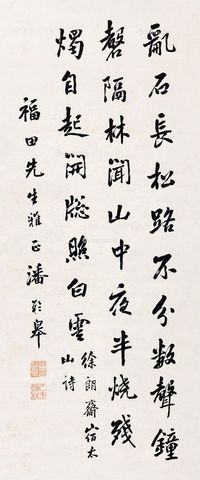 亂石長松路不分數聲鐘
磬隔林聞山中夜半燒殘
燭自起開牕照白雲
徐朗齋宿太
山詩
福田先生雅正 潘齡皋